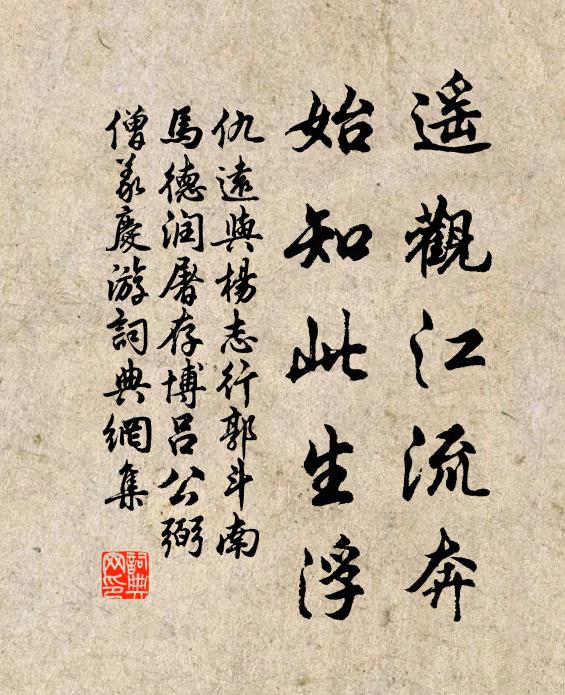 遥觀江流奔
始知此生浮
仇遠與楊志行郭斗南
馬德润屠存博吕公弼
僧義慶游詞典網集
詞典网印